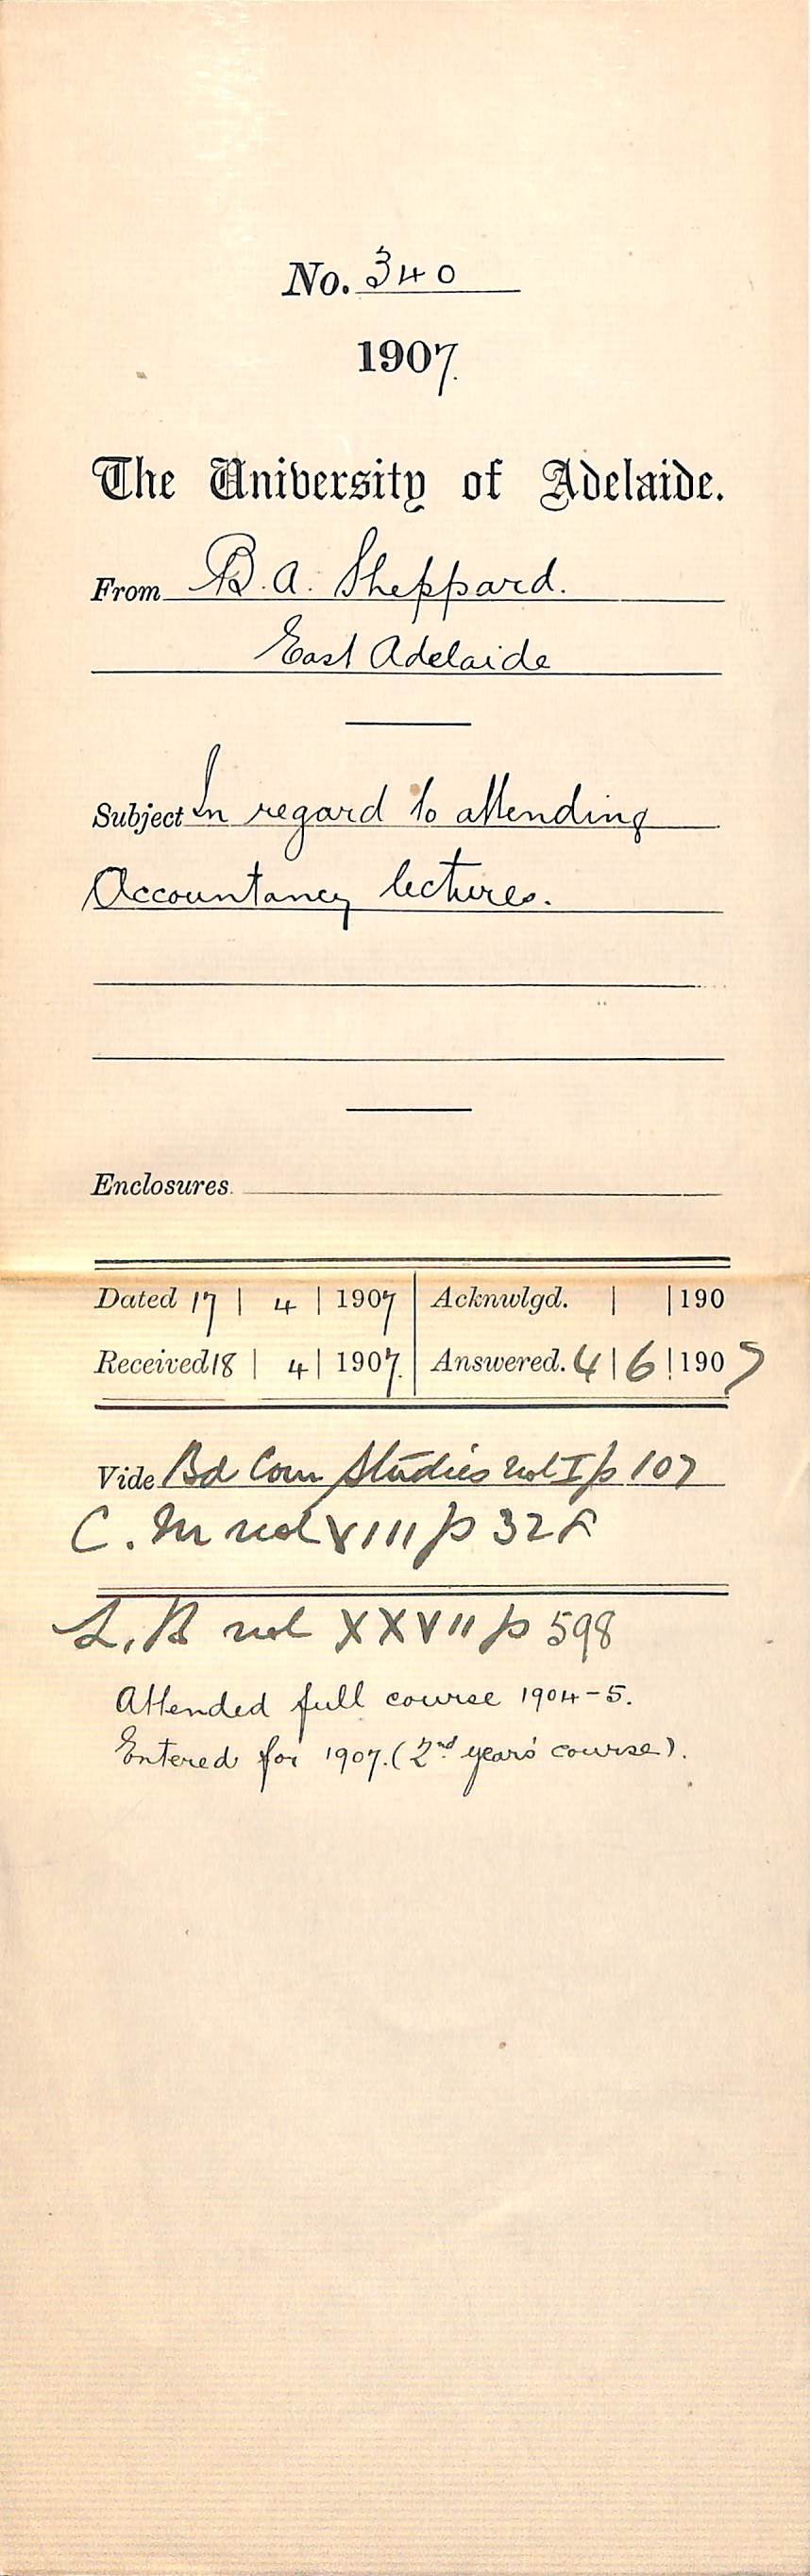 No. 340
1907.
The University of Adelaide.
From B. A. Sheppard.
East Adelaide
Subject In regard to attending
Accountancy lectures.
Enclosures.
Dated 17 | 4 | 1907 Acknwlgd. | | 190
Received 18 | 4 | 1907. Answered. 4 | 6 | 1907
Vide Bd Com Studies vol I p 107
C. M vol VIII p 328
L. B vol XXVII p 598
Attended full course 1904-5.
Entered for 1907. (2nd year's course).